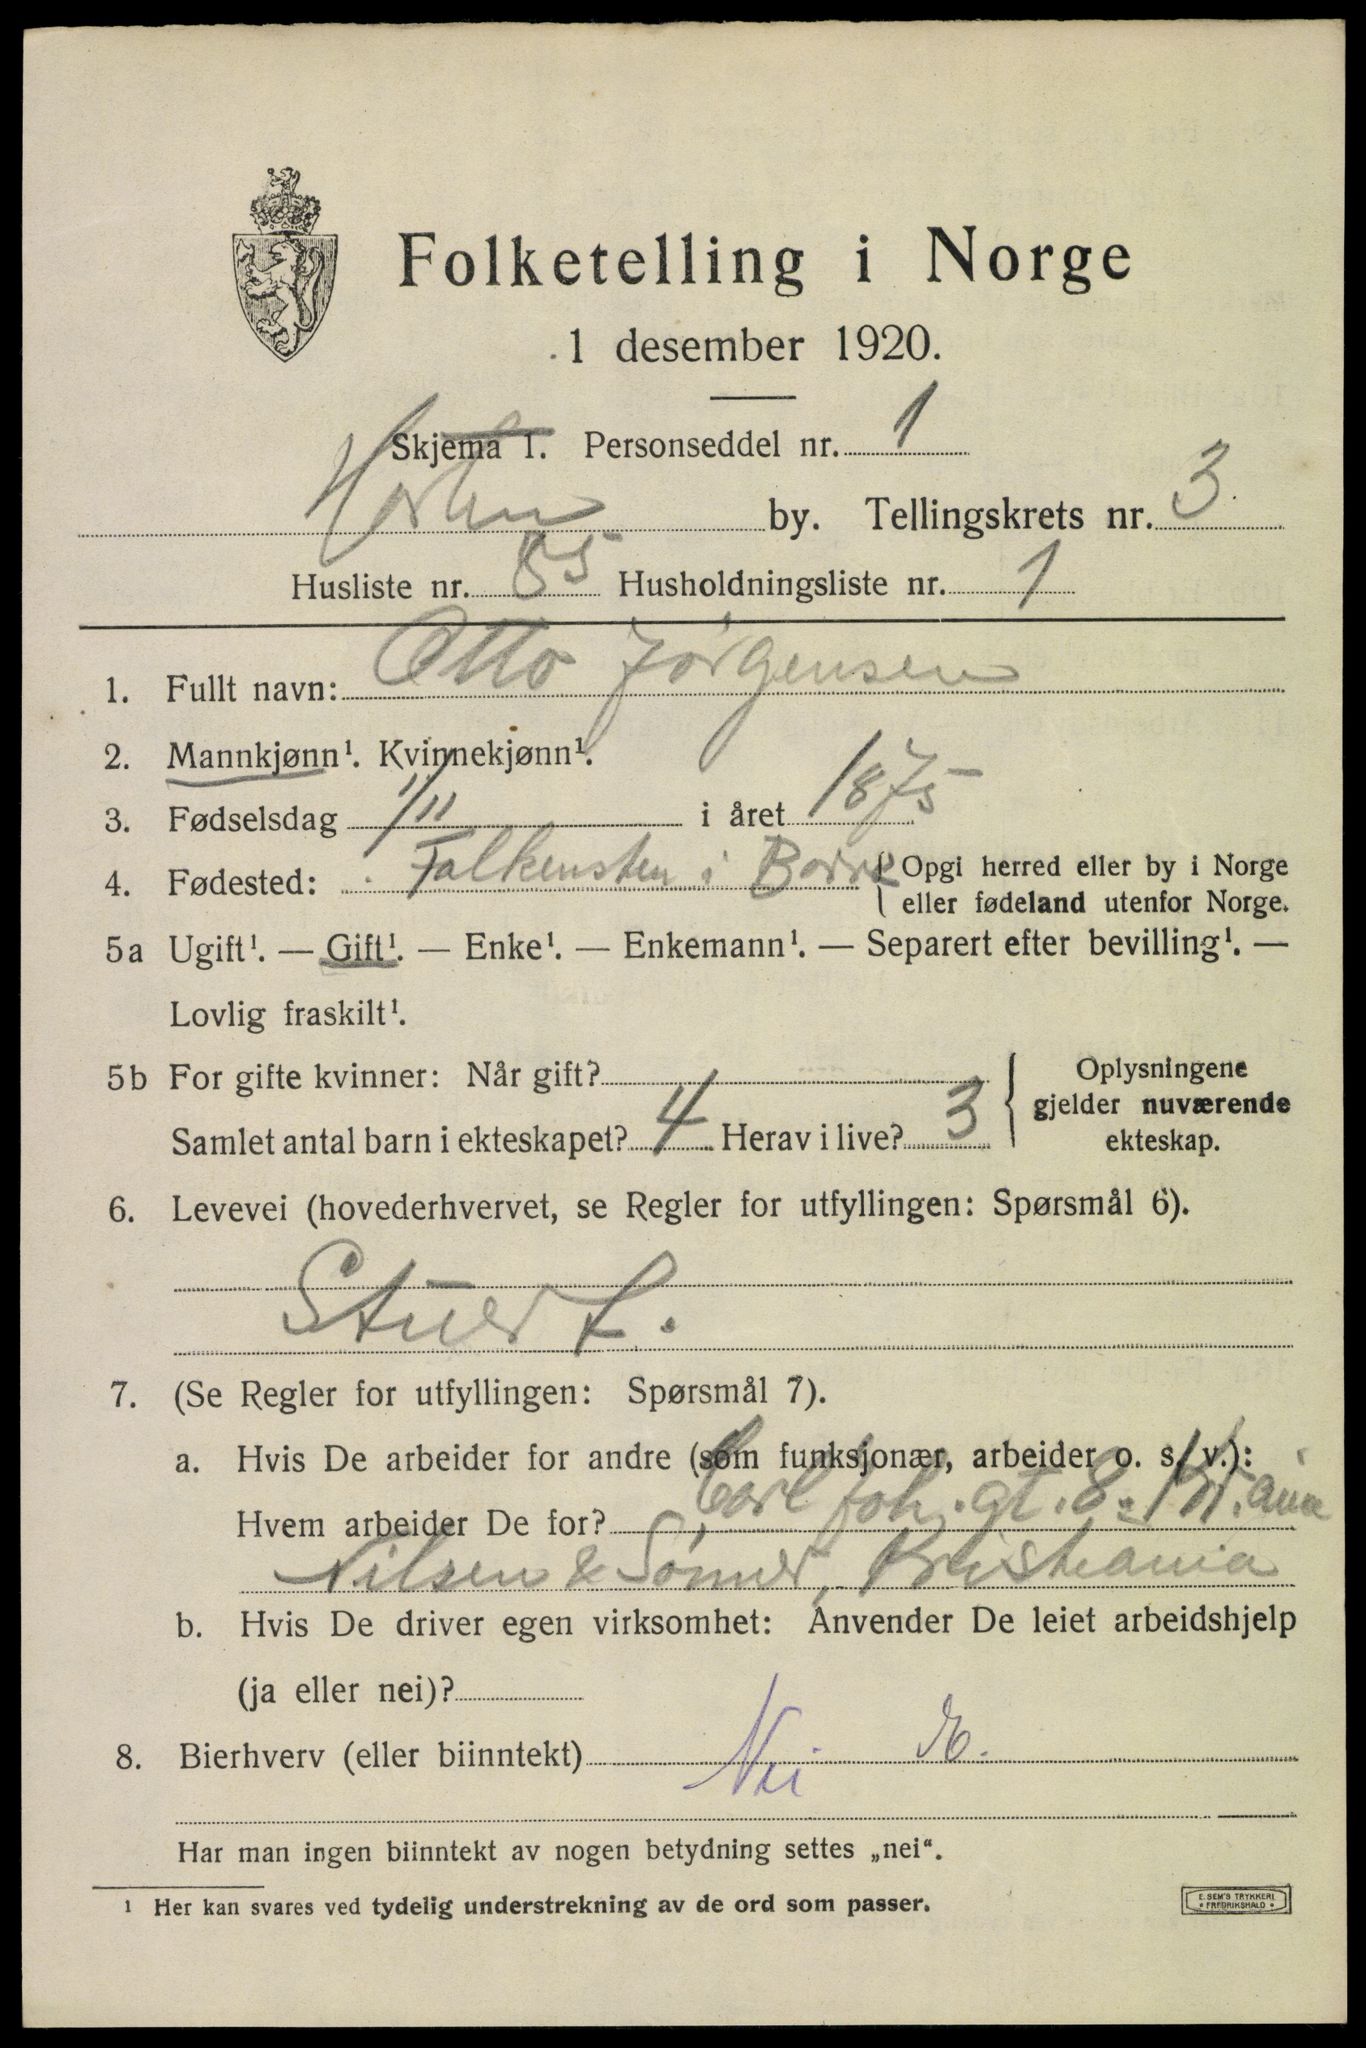 Folketelling i Norge
1 desember 1920.
Skjema 1. Personseddel nr. 1
Horten by. Tellingskrets nr. 3
Husliste nr. 85 Husholdningsliste nr. 1
1. Fullt navn: Otto Jørgensen
2. Mannkjønn¹. Kvinnekjønn¹.
3. Fødselsdag 1/11 i året 1875
4. Fødested: Falkensten i Borre { Opgi herred eller by i Norge
eller fødeland utenfor Norge.
5a Ugift¹. — Gift¹. — Enke¹. — Enkemann¹. — Separert efter bevilling¹. —
Lovlig fraskilt¹.
5b For gifte kvinner: Når gift?
Samlet antal barn i ekteskapet? 4 Herav i live? 3
Oplysningene
gjelder nuværende
ekteskap.
6. Levevei (hovederhvervet, se Regler for utfyllingen: Spørsmål 6).
Stuert.
7. (Se Regler for utfyllingen: Spørsmål 7).
a. Hvis De arbeider for andre (som funksjonær, arbeider o. s. v.):
Hvem arbeider De for? Carl Joh. gt. 8. Kr.ania
Nilsen & Sønner, Kristiania
b. Hvis De driver egen virksomhet: Anvender De leiet arbeidshjelp
(ja eller nei)?
8. Bierhverv (eller biinntekt) Nei
Har man ingen biinntekt av nogen betydning settes „nei“.
¹ Her kan svares ved tydelig understrekning av de ord som passer.
E. SEM'S TRYKKERI
FREDRIKSHALD